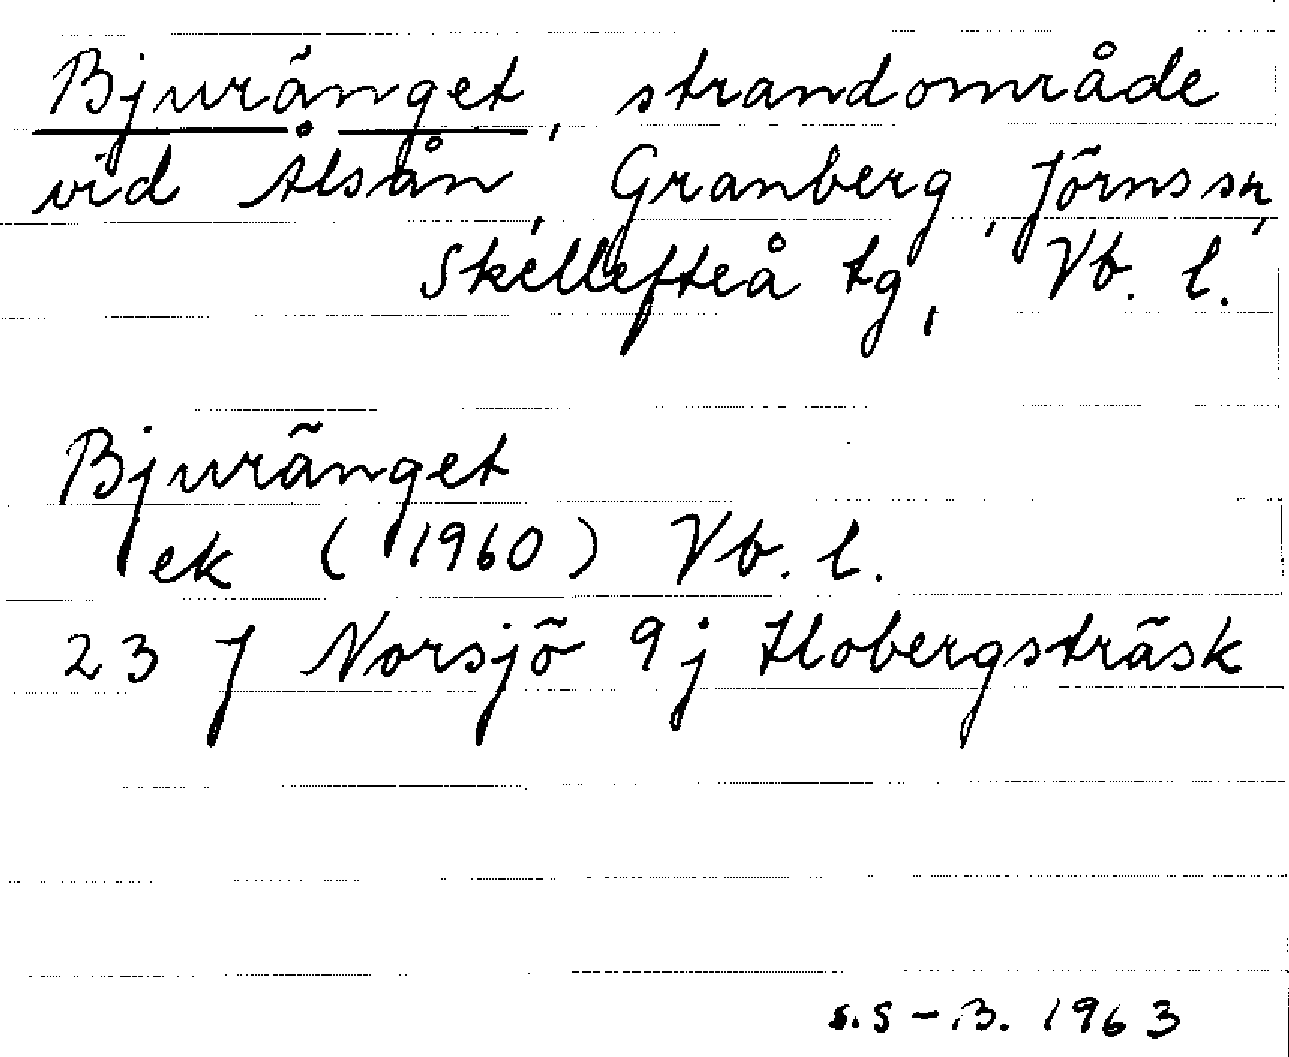 Bjuränget, strandområde
vid Ålsån, Granberg, Jörns sn,
Skellefteå tg, Vb. l.
Bjuränget
ek (1960) Vb. l.
23 J Norsjö 9j Hobergsträsk
s.s-B. 1963